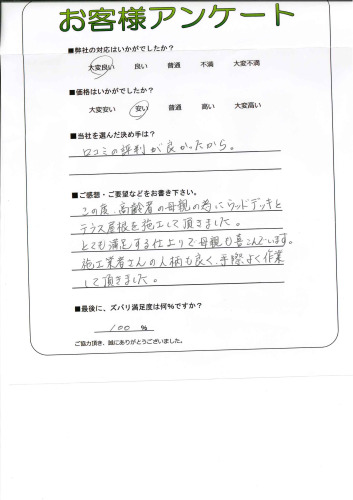 お客様アンケート
■弊社の対応はいかがでしたか？
大変良い 良い 普通 不満 大変不満
■価格はいかがでしたか？
大変安い 安い 普通 高い 大変高い
■当社を選んだ決め手は？
口コミの評判が良かったから。
■ご感想・ご要望などをお書き下さい。
この度、高齢者の母親の為にウッドデッキと
テラス屋根を施工して頂きました。
とても満足する仕上りで母親も喜こんでいます。
施工業者さんの人柄も良く、手際よく作業
して頂きました。
■最後に、ズバリ満足度は何%ですか？
100 %
ご協力頂き、誠にありがとうございました。